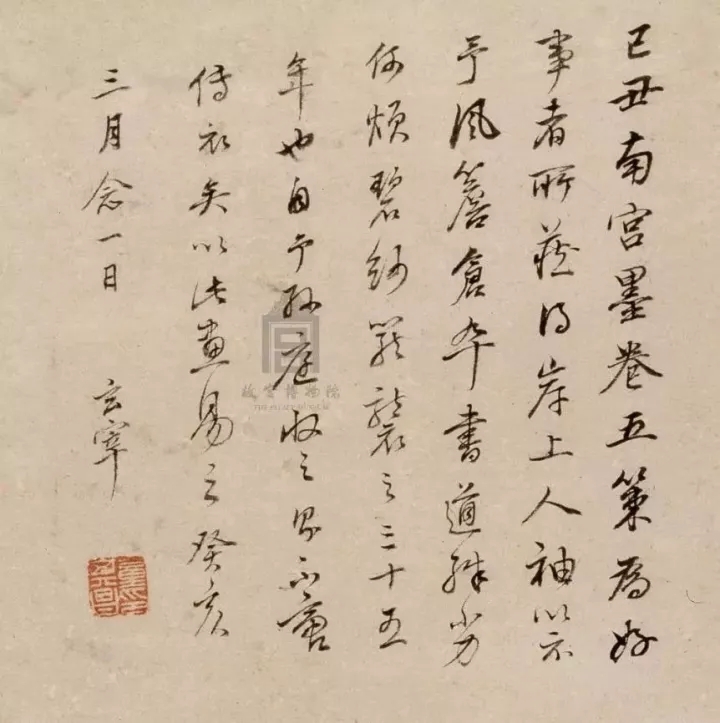 己丑南宮墨卷五策為好
事者所藏得岸上人袖以示
予風簷倉卒書道殊劣
何煩碧紗籠襲之三十五
年也自予孫庭收之不啻
傳衣矣以此畫易之癸亥
三月念一日 玄宰
故宫博物院